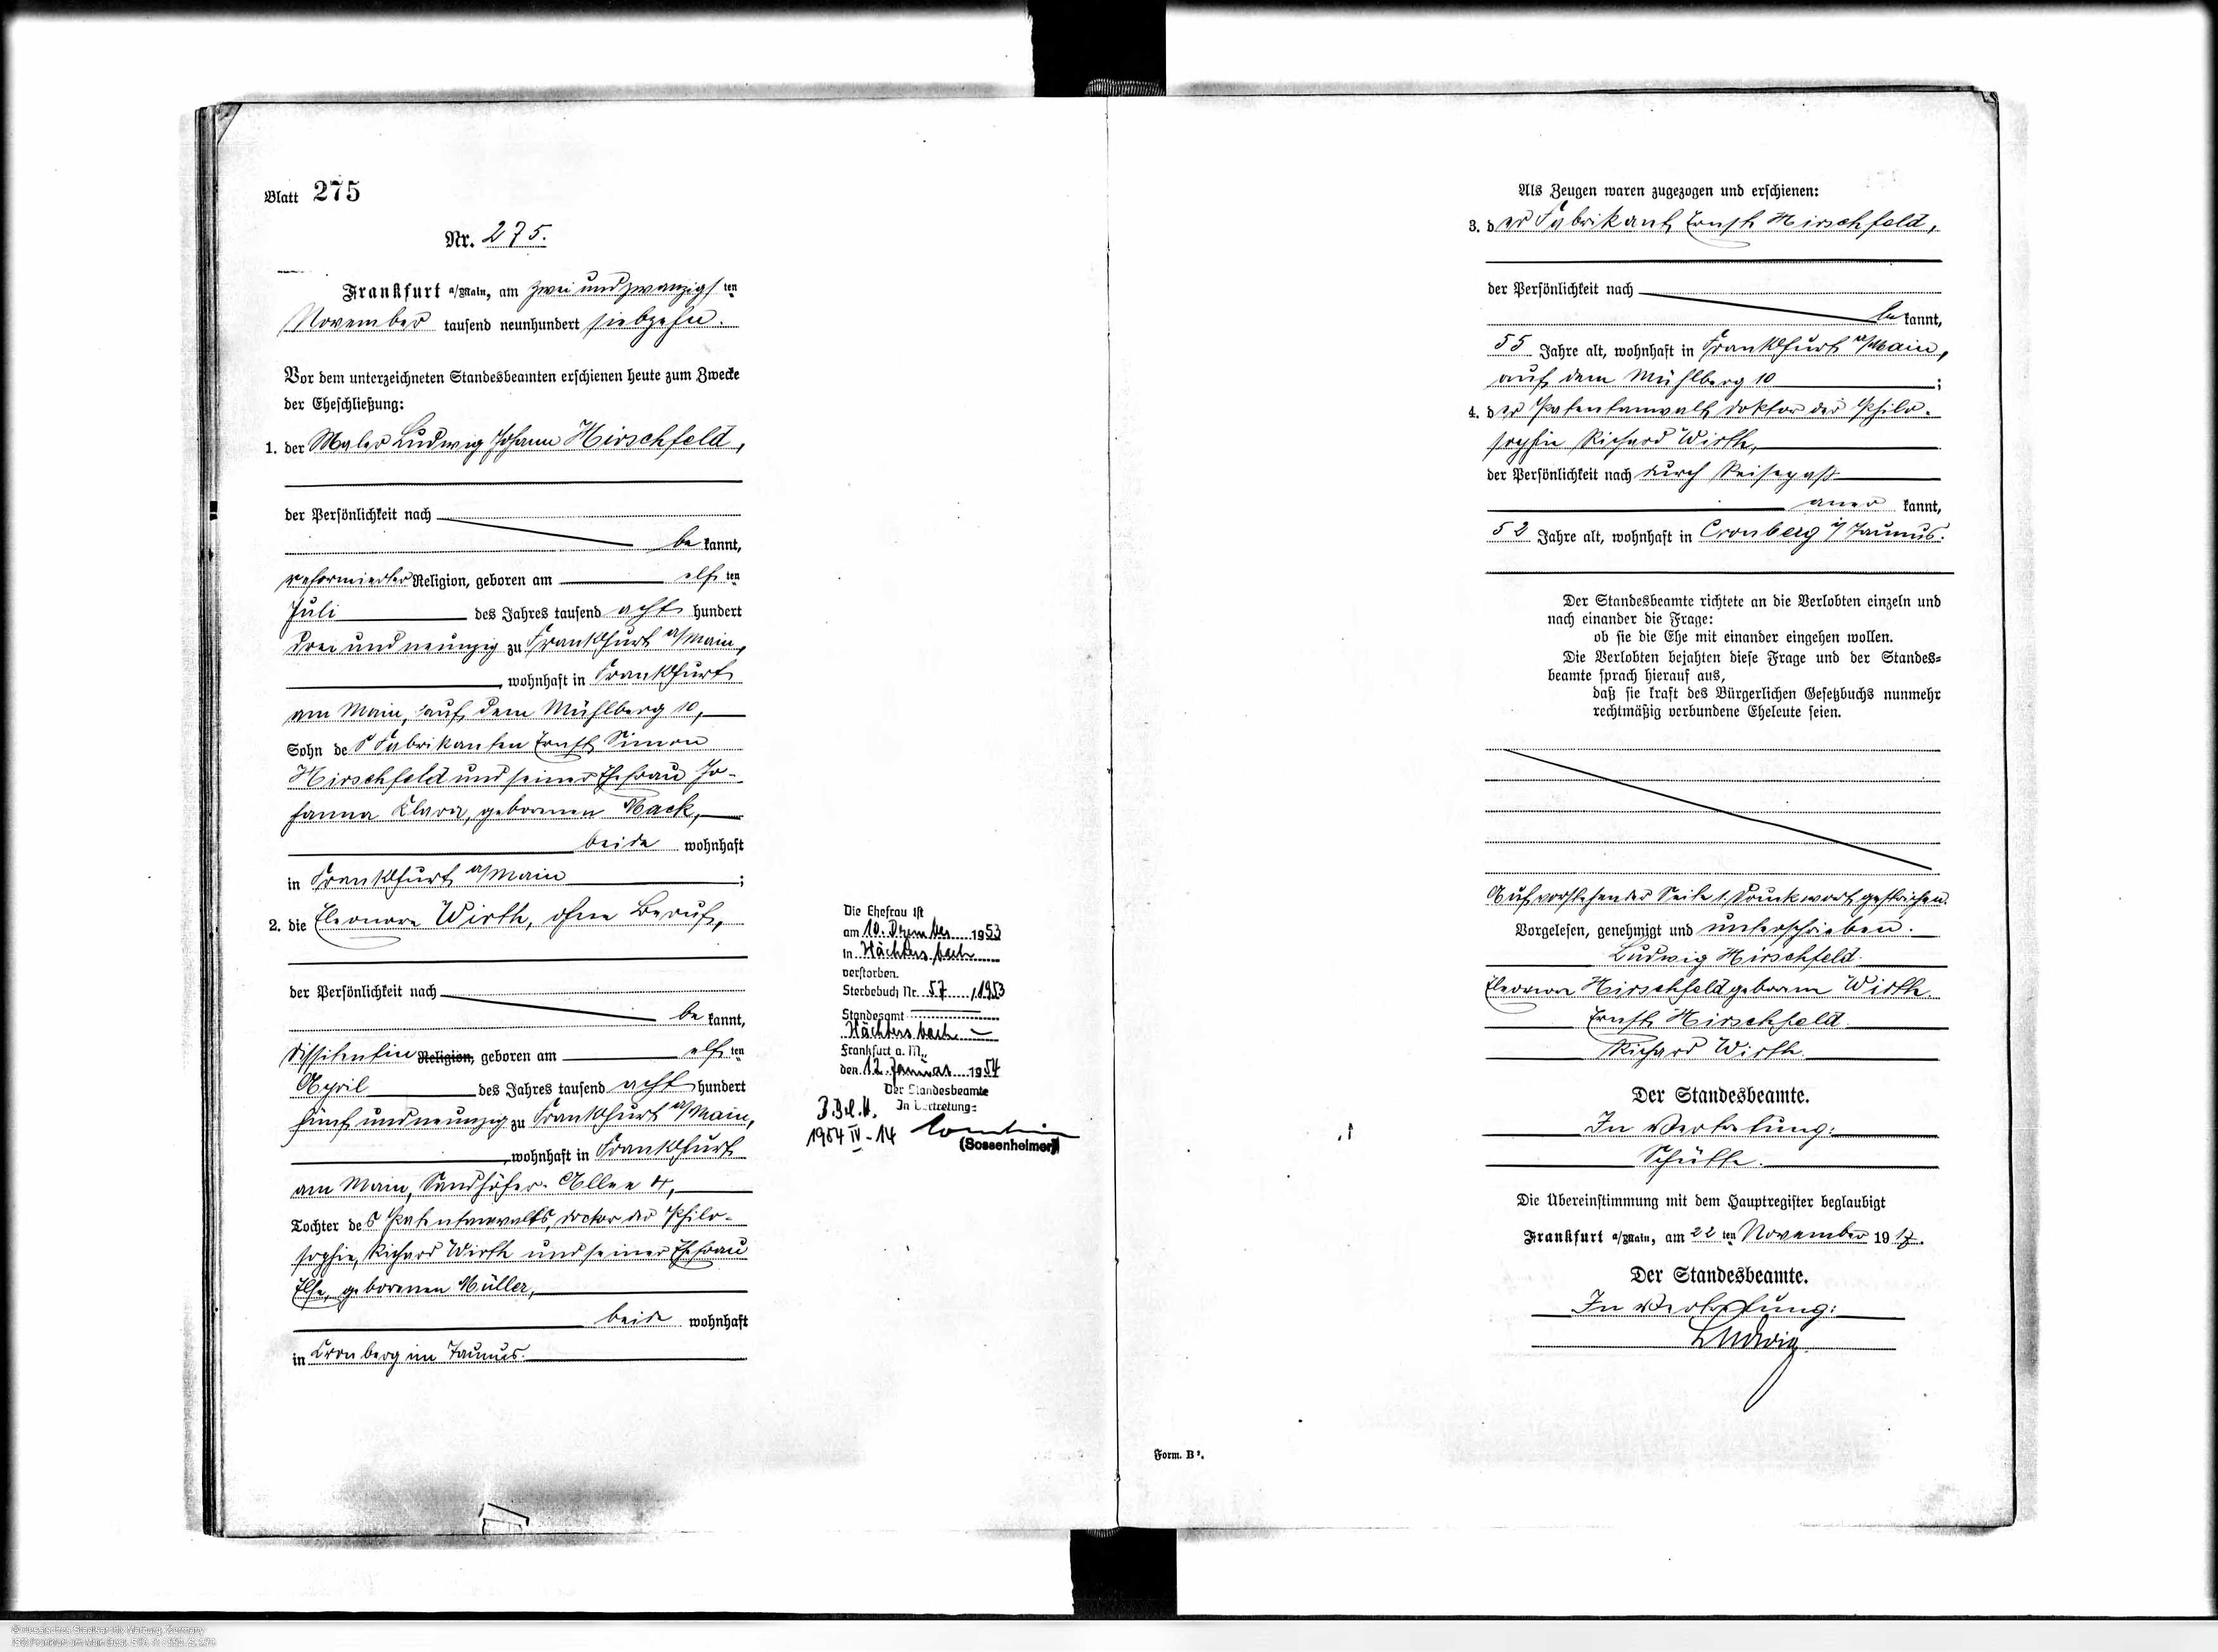 Blatt 275
Nr. 275.
Frankfurt a/Main, am zwei und zwanzigsten
November tausend neunhundert siebzehn.
Vor dem unterzeichneten Standesbeamten erschienen heute zum Zwecke
der Eheschließung:
1. der Maler Ludwig Johann Hirschfeld,
der Persönlichkeit nach
bekannt,
reformierter Religion, geboren am elften
Juli des Jahres tausend acht hundert
drei und neunzig zu Frankfurt a/Main,
, wohnhaft in Frankfurt
am Main, auf dem Mühlberg 10,
Sohn des Fabrikanten Ernst Simon
Hirschfeld und seiner Ehefrau Jo-
hanna Klara, geborenen Mack,
beide wohnhaft
in Frankfurt a/Main ;
2. die Eleonore Wirth, ohne Beruf,
der Persönlichkeit nach
bekannt,
Dissidentin Religion, geboren am elften
April des Jahres tausend acht hundert
fünf und neunzig zu Frankfurt a/Main,
, wohnhaft in Frankfurt
am Main, Sandhöfer-Allee 4,
Tochter des Patentanwalts, Doctor der Philo-
sophie, Richard Wirth und seiner Ehefrau
Else, geborenen Müller,
beide wohnhaft
in Cronberg im Taunus.
Die Ehefrau ist
am 10. Dezember 1953
in Wächtersbach
verstorben.
Sterbebuch Nr. 57 / 1953
Standesamt
Wächtersbach
Frankfurt a. M.,
den 12. Januar 1954
Der Standesbeamte
In Vertretung:
1954 IV - 14
(Sossenheimer)
Als Zeugen waren zugezogen und erschienen:
3. der Fabrikant Ernst Hirschfeld,
der Persönlichkeit nach
bekannt,
55 Jahre alt, wohnhaft in Frankfurt a/Main,
auf dem Mühlberg 10 ;
4. der Patentanwalt Doktor der Philo-
sophie Richard Wirth,
der Persönlichkeit nach durch Reisepaß
anerkannt,
52 Jahre alt, wohnhaft in Cronberg i/Taunus.
Der Standesbeamte richtete an die Verlobten einzeln und
nach einander die Frage:
ob sie die Ehe mit einander eingehen wollen.
Die Verlobten bejahten diese Frage und der Standes=
beamte sprach hierauf aus,
daß sie kraft des Bürgerlichen Gesetzbuchs nunmehr
rechtmäßig verbundene Eheleute seien.
Auf vorstehender Seite 1 Druckwort gestrichen.
Vorgelesen, genehmigt und unterschrieben.
Ludwig Hirschfeld.
Eleonore Hirschfeld geborene Wirth.
Ernst Hirschfeld.
Richard Wirth.
Der Standesbeamte.
In Vertretung:
Schütte.
Die Übereinstimmung mit dem Hauptregister beglaubigt
Frankfurt a/Main, am 22ten November 1917.
Der Standesbeamte.
In Vertretung:
Ludwig
Form. B².